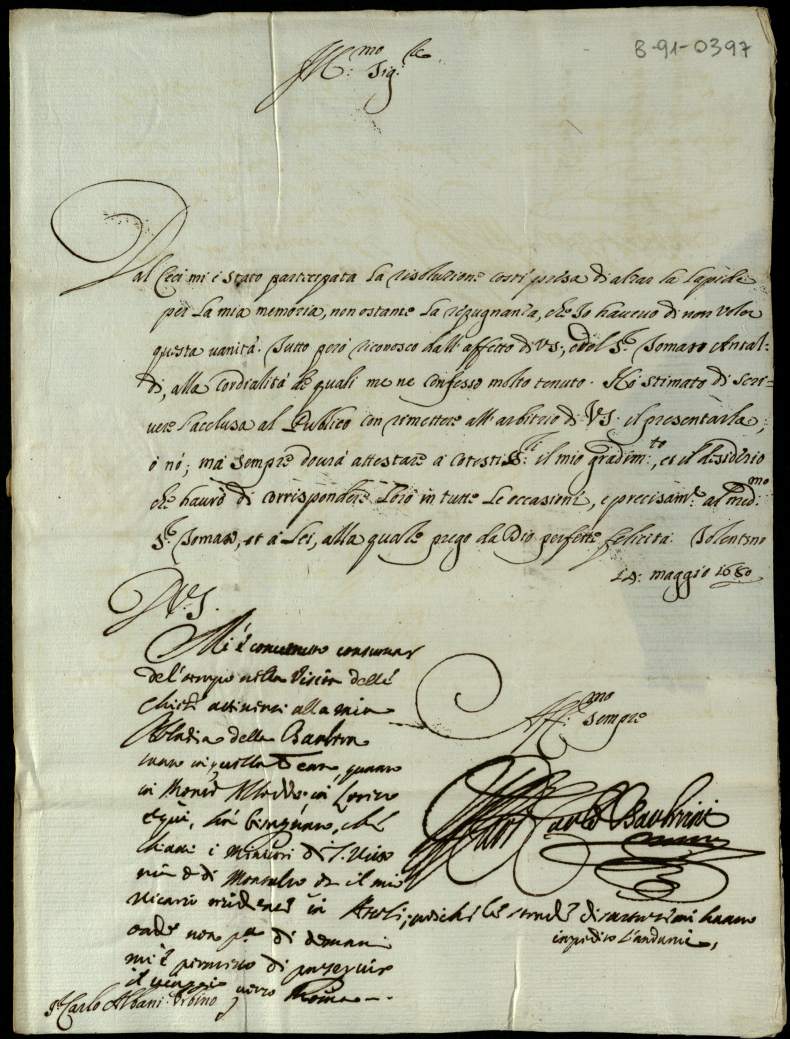 8-91-0397
Ill:mo Sig:re
Dal Ceci mi è stato participata la risoluzione costì presa di alzar la lapide
per la mia memoria, non ostante la repugnanza, che Io havevo di non voler
questa vanità. Tutto però riconosco dall'affetto di VS:, e del S.r Tomaso Antal:
di, alla cordialità de quali me ne confesso molto tenuto. Hò stimato di scri:
vere l'acclusa al Publico con rimettere all'arbitrio di VS. il presentarla,
ò nò; mà sempre dovrà attestare à cotesti SS:ri il mio gradim:to, et il desiderio
che havrò di corrispondere loro in tutte le occasioni, e precisam.te al med:mo
S.r Tomaso, et à Lei, alla quale prego da Dio perfette felicità. Tolentino
19: maggio 1680
D VS.
Mi è convenuto consumar
del tempo nella Visita delle
Chiese attinenti alla mia
Abbadia della
tanto in quella
in
e qui, hà bisognato, che
i Ministri di S.
e di il mio
Vicario residente in Ascoli, poiche le strade
hanno
impedito l'andarvi,
onde non p.a di domani
mi è permesso di proseguire
il viaggio verso Roma.
Aff:mo sempre
Il Card Carlo Barberini
S.r Carlo Albani Urbino